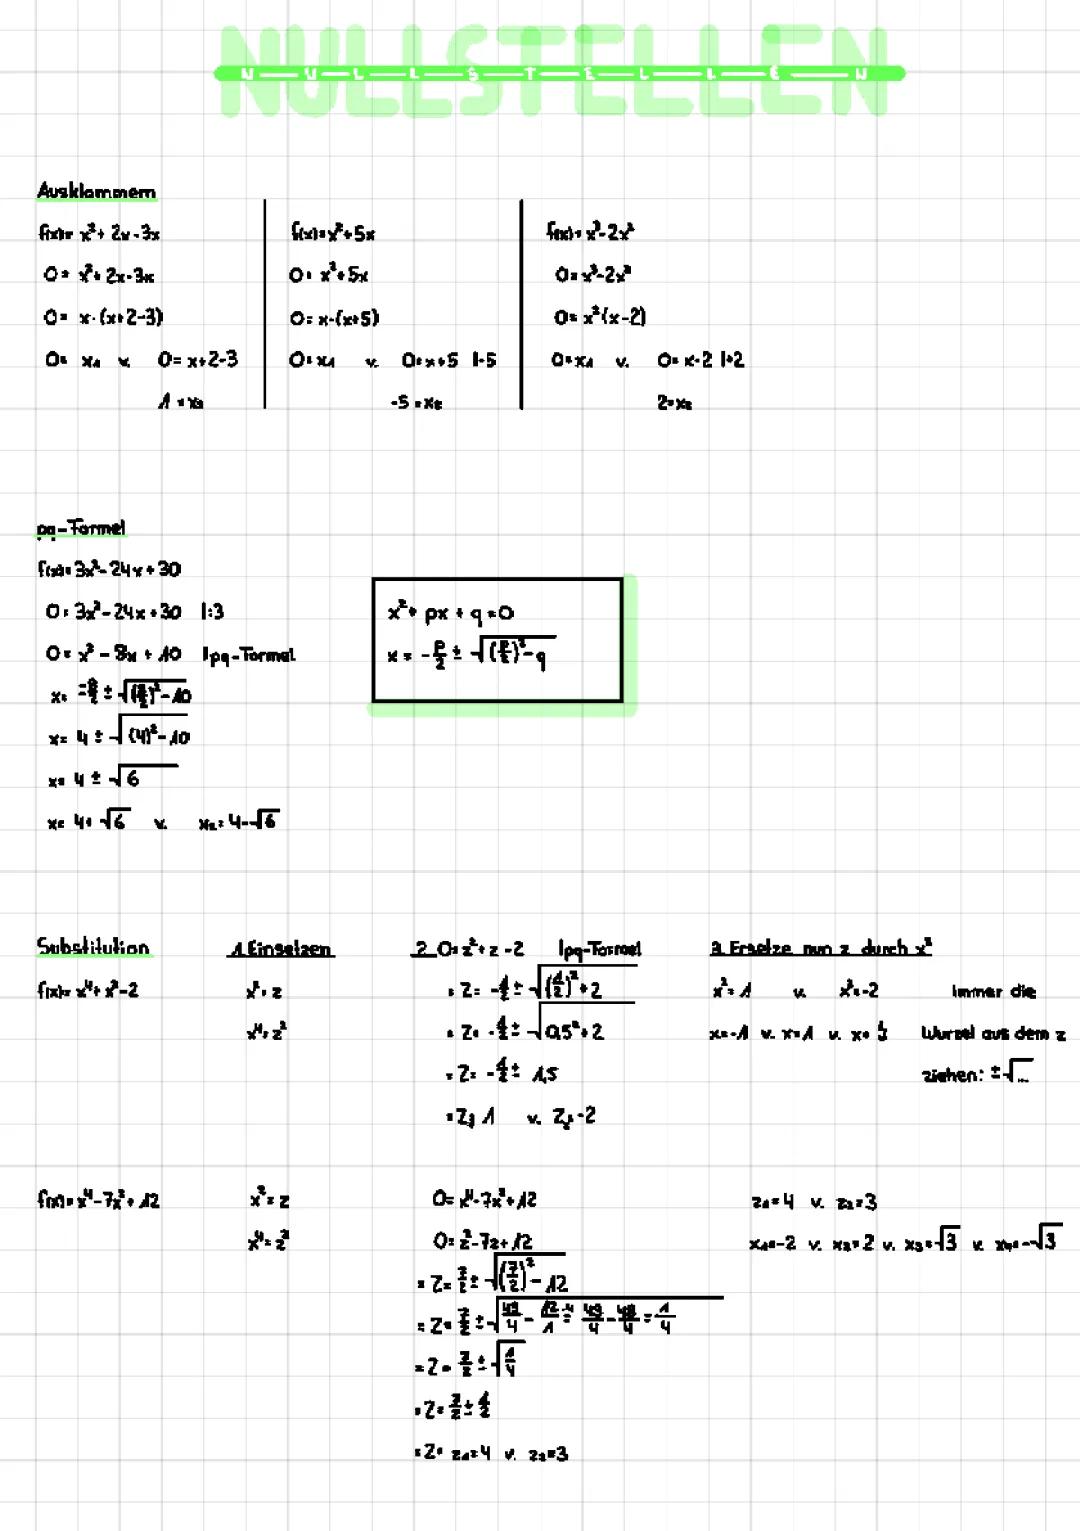 NULLSTELLEN
N U L L S T E L L E N
Ausklammern
f(x)= x²+ 2x-3x
0= x²+ 2x-3x
0= x·(x+2-3)
0= x₁ v. 0= x+2-3
1 = x₂
f(x)=x²+5x
0= x²+5x
0= x·(x+5)
0=x₁ v. 0=x+5 |-5
-5 = x₂
f(x)= x³-2x²
0=x³-2x²
0= x²(x-2)
0=x₁ v. 0= x-2 |+2
2=x₂
pq-Formel
f(x)= 3x²-24x+30
0= 3x²-24x+30 |:3
0= x²-8x+10 |pq-Formel
x= -⁻⁸⁄₂ ± √(⁸⁄₂)²-10
x= 4 ± √(4)²-10
x= 4 ± √6
x= 4+ √6 v. x₂= 4-√6
x²+ px + q =0
x = -p/2 ± √(p/2)²-q
Substitution
f(x)= x⁴+x²-2
1. Einsetzen
x²=z
x⁴=z²
2. 0=z²+z-2 |pq-Formel
= z= -1/2 ± √(1/2)²+2
= z= -1/2 ± √0,5²+2
= z= -1/2 ± 1,5
= z₁= 1 v. z₂=-2
3. Ersetze nun z durch x²
x²=1 v. x²=-2
x=-1 v. x=1 v. x=
Immer die
Wurzel aus dem z
ziehen: ±√...
f(x)= x⁴-7x²+12
x²=z
x⁴=z²
0= x⁴-7x²+12
0= z²-7z+12
= z= 7/2 ± √(7/2)²-12
= z= 7/2 ± √49/4 - 12/1 ·4 = 49/4 - 48/4 = 1/4
= z= 7/2 ± √1/4
= z= 7/2 ± 1/2
= z= z₁=4 v. z₂=3
z₁=4 v. z₂=3
x₁=-2 v. x₂=2 v. x₃=√3 v. x₄=-√3